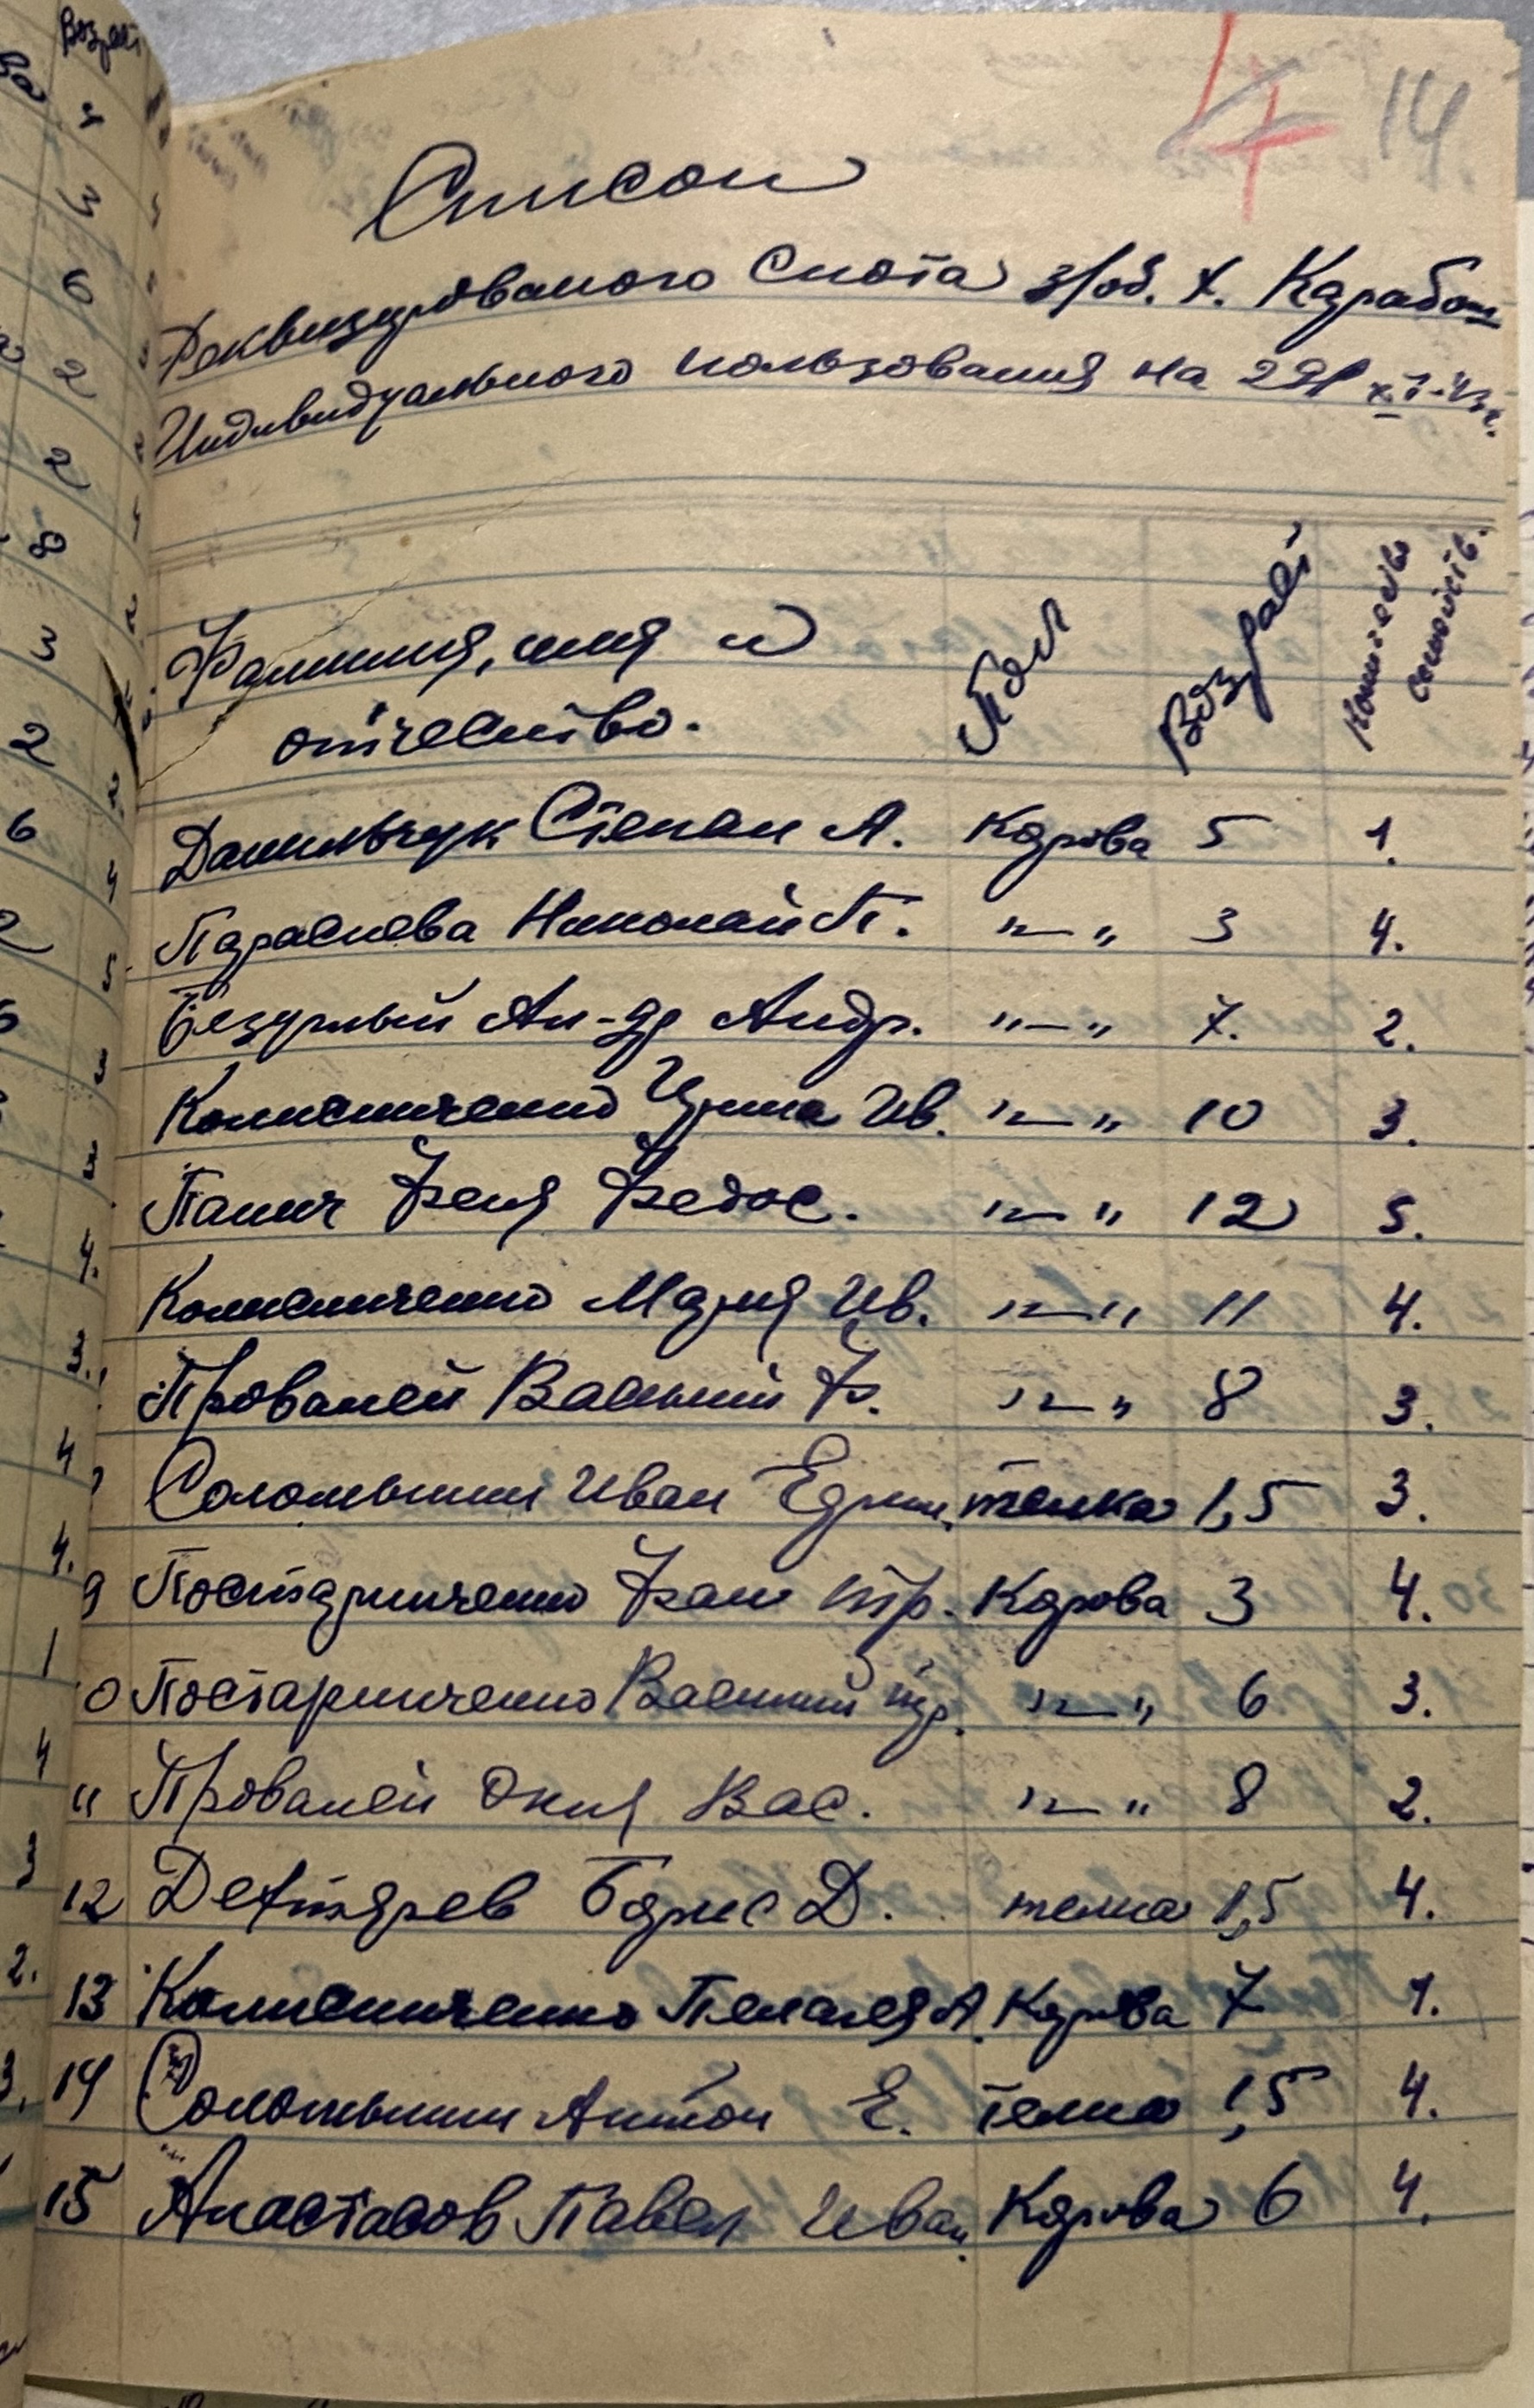 4 14
Список
Реквизированого Скота з/об. х. Карабон
Индивидуального пользования на 29/XI-43г.
Фамилия, имя и отчество. Пол Возраст Количество семейств.
Данильчук Степан А. Корова 5 1.
Параскева Николай П. "—" 3 4.
Безуглый Ал-др Андр. "—" 7. 2.
Колисниченко Ирина Ив. "—" 10 3.
Папич Феня Федос. "—" 12 5.
Колисниченко Мария Ив. "—" 11 4.
Прованей Василий Ф. "—" 8 3.
Соломыкин Иван Ефим. телка 1,5 3.
9 Постаришченко Иван Гр. Корова 3 4.
10 Постаришченко Василий гр. "—" 6 3.
11 Прованей Окия Вас. "—" 8 2.
12 Дехтярев Борис Д. телка 1,5 4.
13 Колисниченко Пелагея А. Корова 7 1.
14 Соломыкин Антон Е. телка 1,5 4.
15 Анастасов Павел Иван. Корова 6 4.